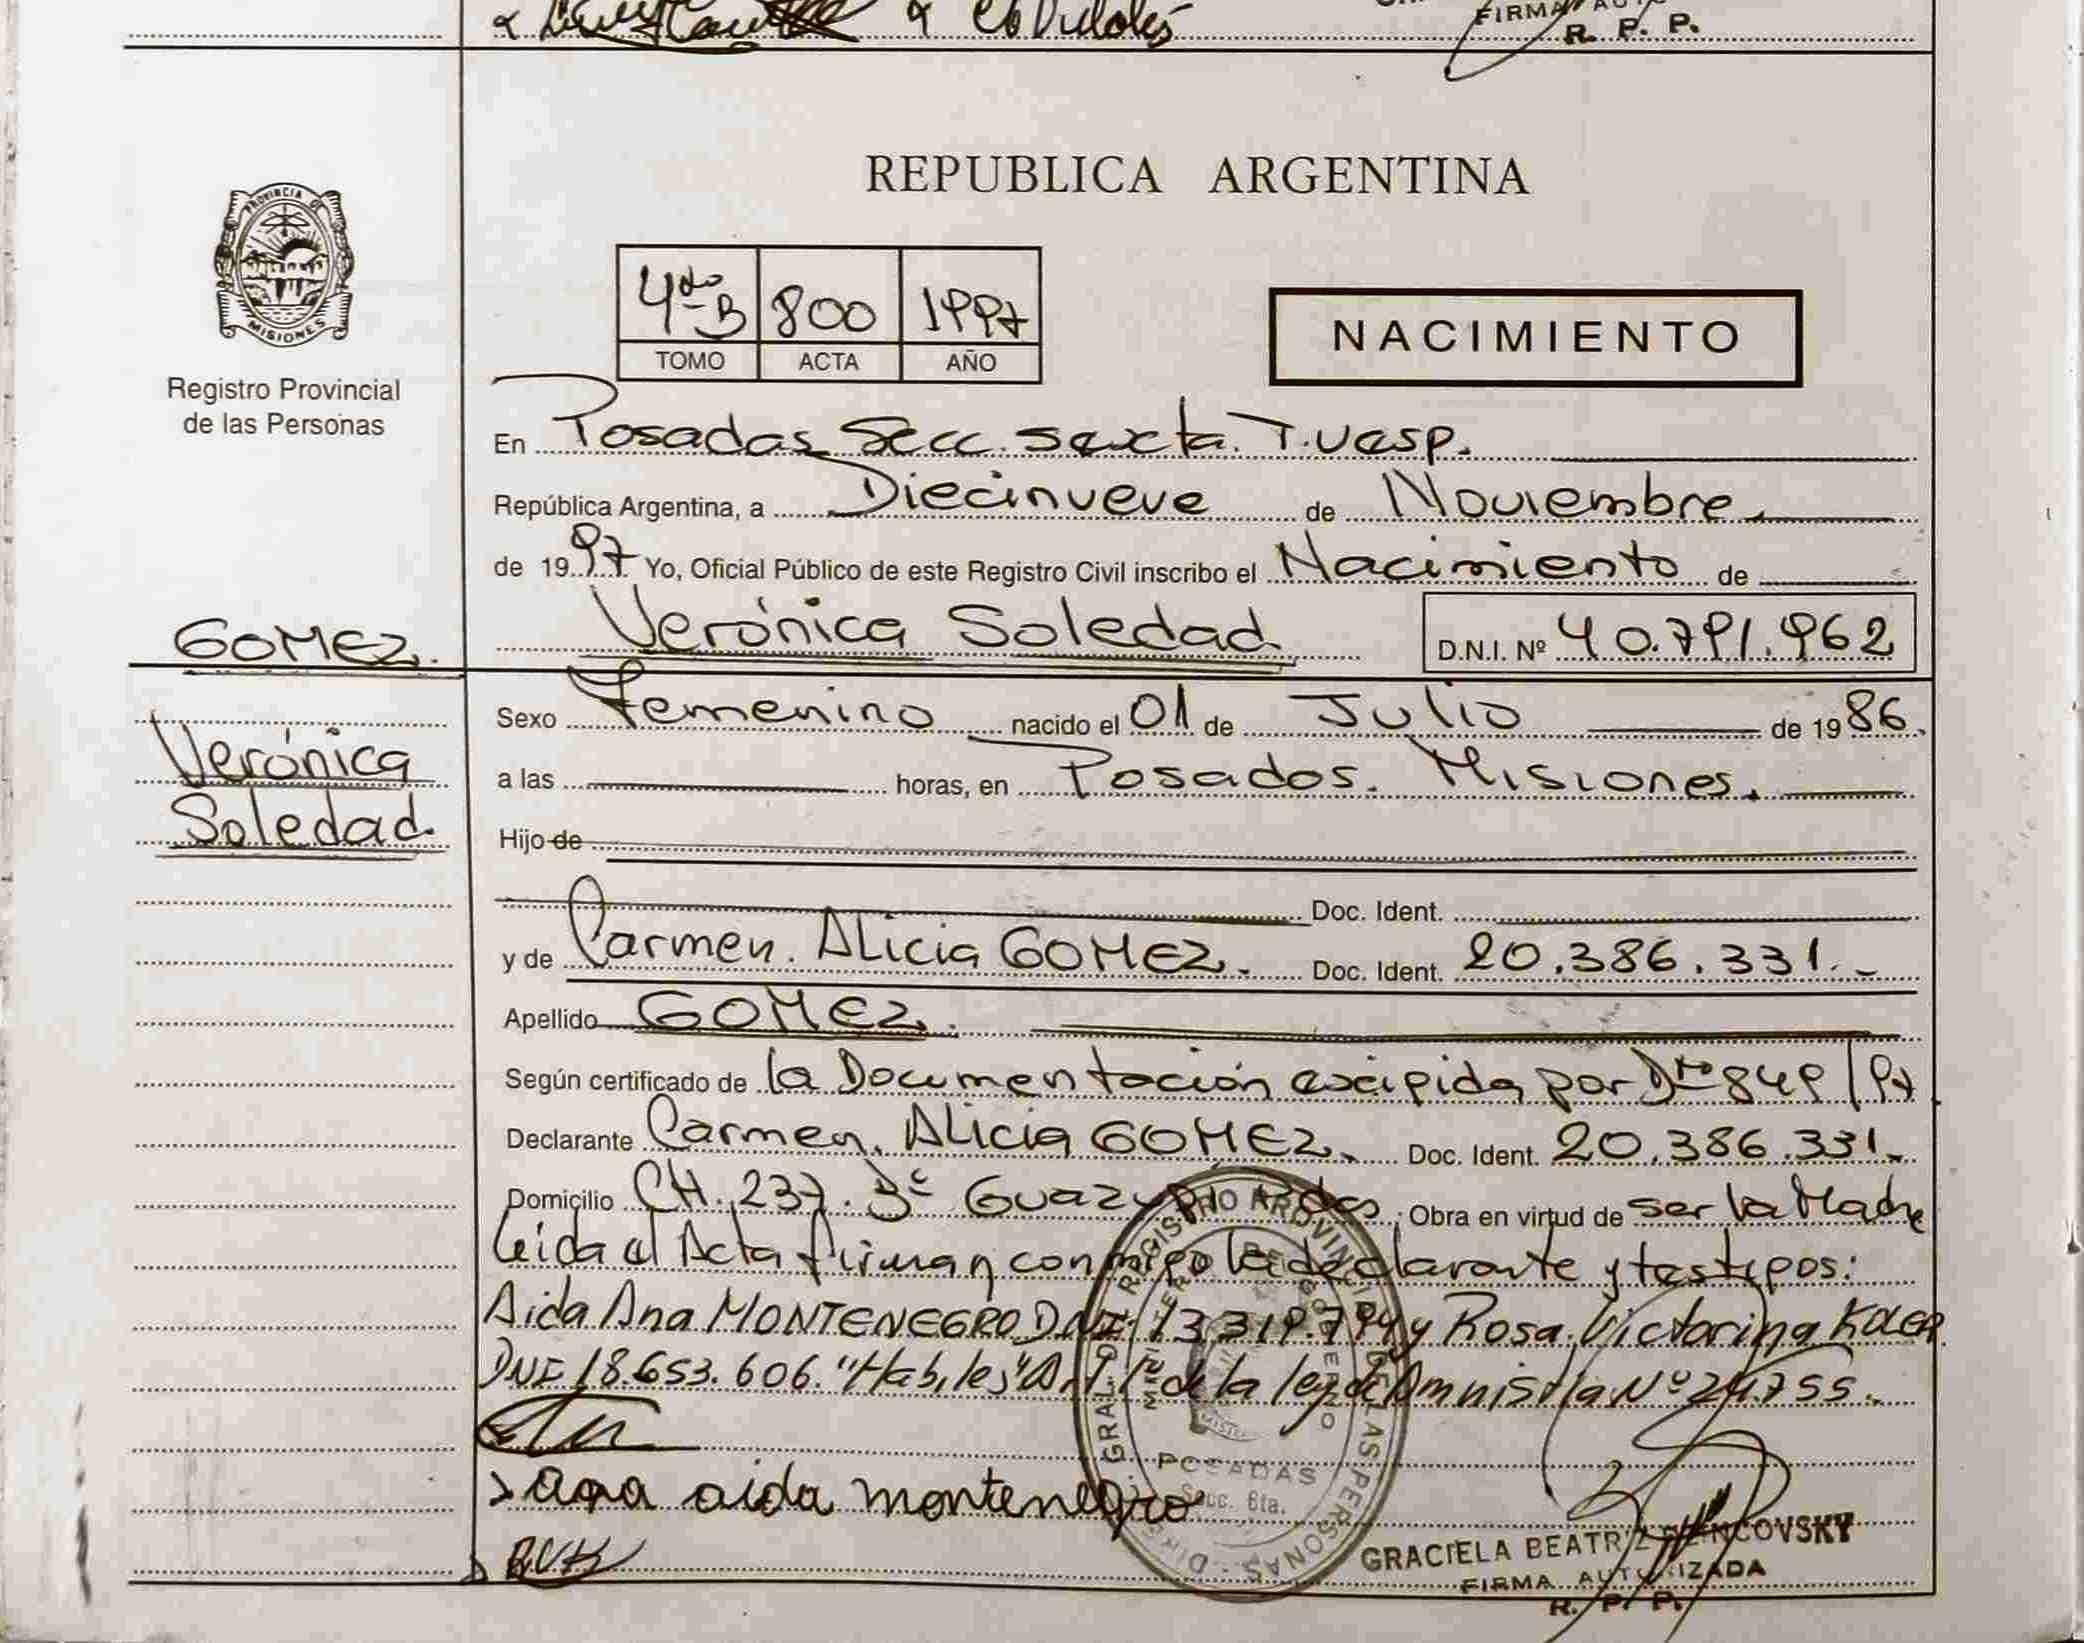 FIRMA AUT
R. P. P.
REPUBLICA ARGENTINA
PROVINCIA DE
MISIONES
Registro Provincial
de las Personas
4to B 800 1997
TOMO ACTA AÑO
NACIMIENTO
En Posadas Secc. sexta. T. vesp.
República Argentina, a Diecinueve de Noviembre
de 1997 Yo, Oficial Público de este Registro Civil inscribo el Nacimiento de
GOMEZ Verónica Soledad D.N.I. Nº 40.791.962
Sexo Femenino nacido el 01 de Julio de 1986.
Verónica
a las horas, en Posadas. Misiones.
Soledad
Hijo de
Doc. Ident.
y de Carmen. Alicia GOMEZ. Doc. Ident. 20.386.331.-
Apellido GOMEZ.
Según certificado de la Documentación exigida por Dto 849/97
Declarante Carmen. Alicia GOMEZ. Doc. Ident. 20.386.331.
Domicilio CH. 237. Bº Guazupi Pdas Obra en virtud de ser la Madre
leida el Acta firman conmigo la declarante y testigos:
Aida Ana MONTENEGRO DNI 13.319.794 y Rosa Victorina
DNI 18.653.606. "Habiles" Art 1º de la ley de Amnistia Nº 24.755.-
ana aida montenegro
RVK
DIR. GRAL. DEL REGISTRO PROVINCIAL DE LAS PERSONAS
MINISTERIO DE GOBIERNO
POSADAS
Secc. 6ta.
GRACIELA BEATRIZ
FIRMA AUTORIZADA
R. P. P.